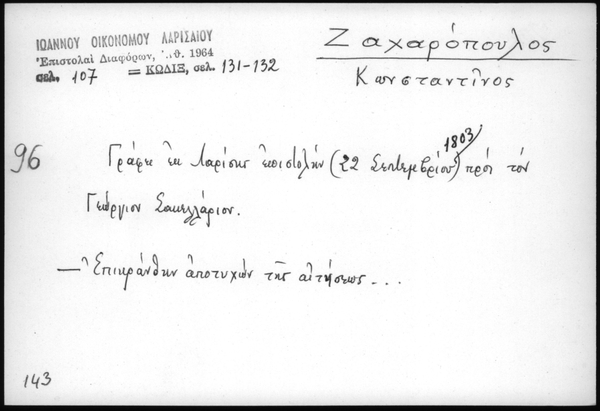 ΙΩΑΝΝΟΥ ΟΙΚΟΝΟΜΟΥ ΛΑΡΙΣΑΙΟΥ
Ἐπιστολαὶ Διαφόρων, Ἀθ. 1964
σελ. 107 = ΚΩΔΙΞ, σελ. 131-132
Ζαχαρόπουλος
Κωνσταντῖνος
96
Γράφει ἐκ Λαρίσης ἐπιστολήν (22 Σεπτεμβρίου 1803) πρός τόν
Γεώργιον Σακελλάριον.
— Ἐπικράνθην ἀποτυχών τῆς αἰτήσεως...
143